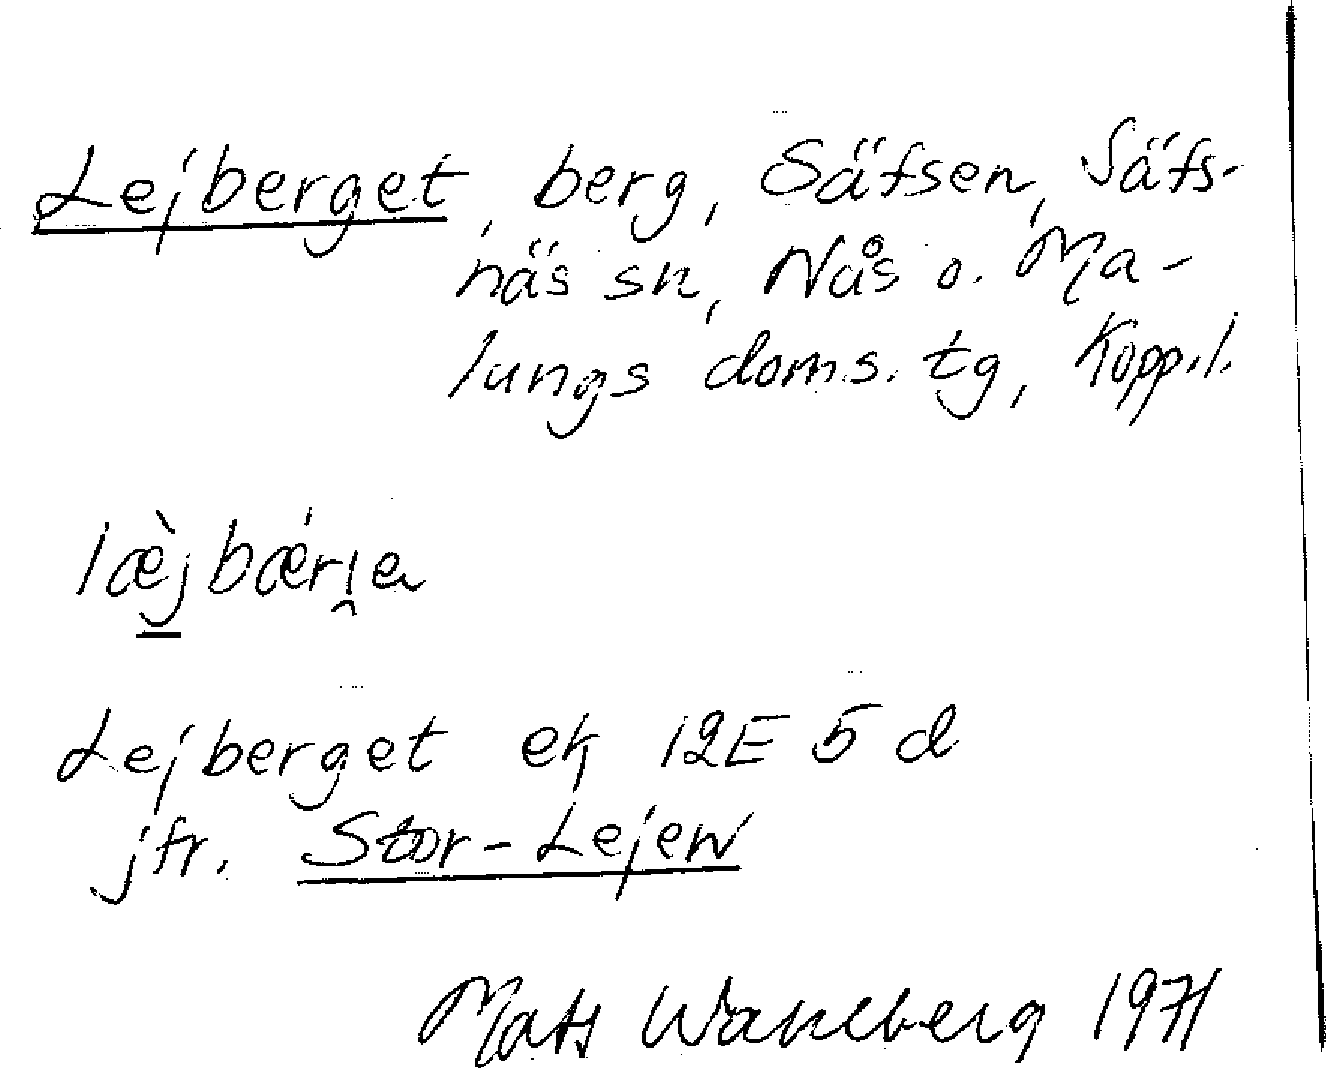 Lejberget, berg, Säfsen, Säfs-
näs sn, Nås o. Ma-
lungs doms. tg, Kopp.l.
Lejberget ek 12E 5 d
jfr. Stor-Lejen
Mats Wahlberg 1971